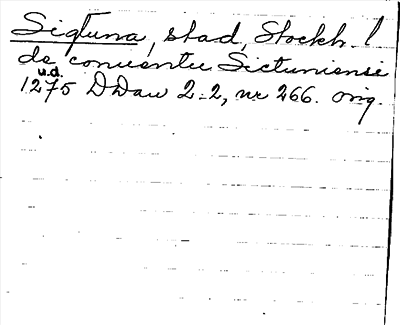 Sigtuna, stad, Stockh. l
de conventu Sictuniensi
u.d.
1275 DDan 2-2, nr 266. orig.